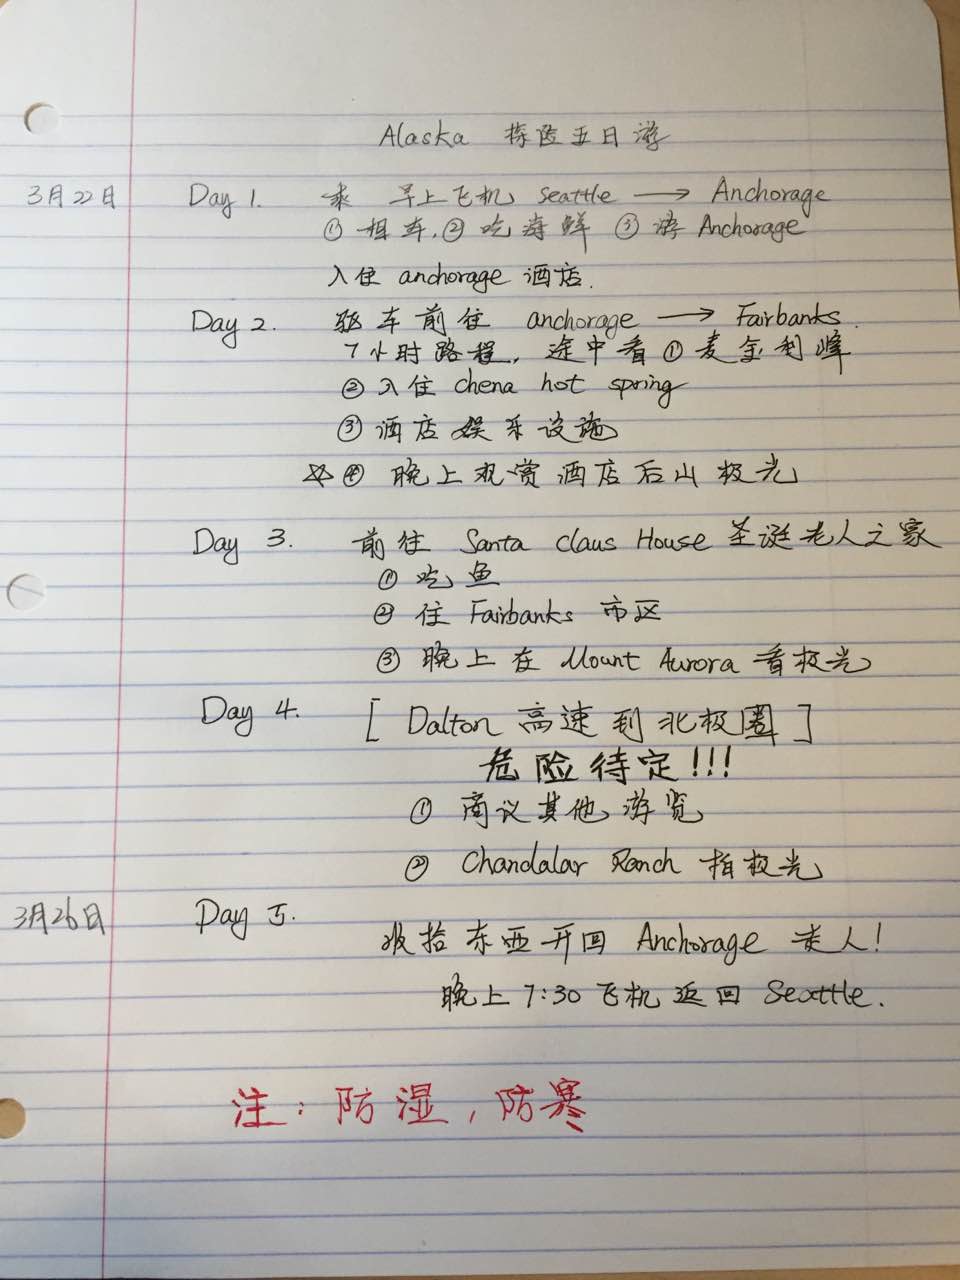 Alaska 探险五日游
3月22日 Day 1. 乘 早上飞机 Seattle → Anchorage
① 租车, ② 吃海鲜 ③ 游 Anchorage
入住 anchorage 酒店.
Day 2. 驱车前往 anchorage → Fairbanks.
7小时路程, 途中看 ① 麦金利峰
② 入住 chena hot spring
③ 酒店娱乐设施
☆ ④ 晚上观赏酒店后山极光
Day 3. 前往 Santa Claus House 圣诞老人之家
① 吃鱼
② 住 Fairbanks 市区
③ 晚上在 Mount Aurora 看极光
Day 4. [ Dalton 高速到北极圈 ]
危险待定!!!
① 商议其他游览
② Chandalar Ranch 拍极光
3月26日 Day 5.
收拾东西开回 Anchorage 走人!
晚上 7:30 飞机返回 Seattle.
注: 防湿, 防寒